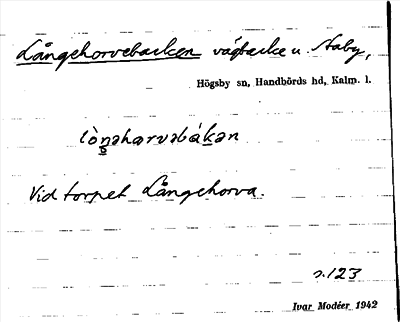 Långehorvebacken vägbacke u. Staby,
Högsby sn, Handbörds hd, Kalm. l.
lòŋəharvəbákən
Vid torpet Långehorva.
s. 123
Ivar Modéer 1942